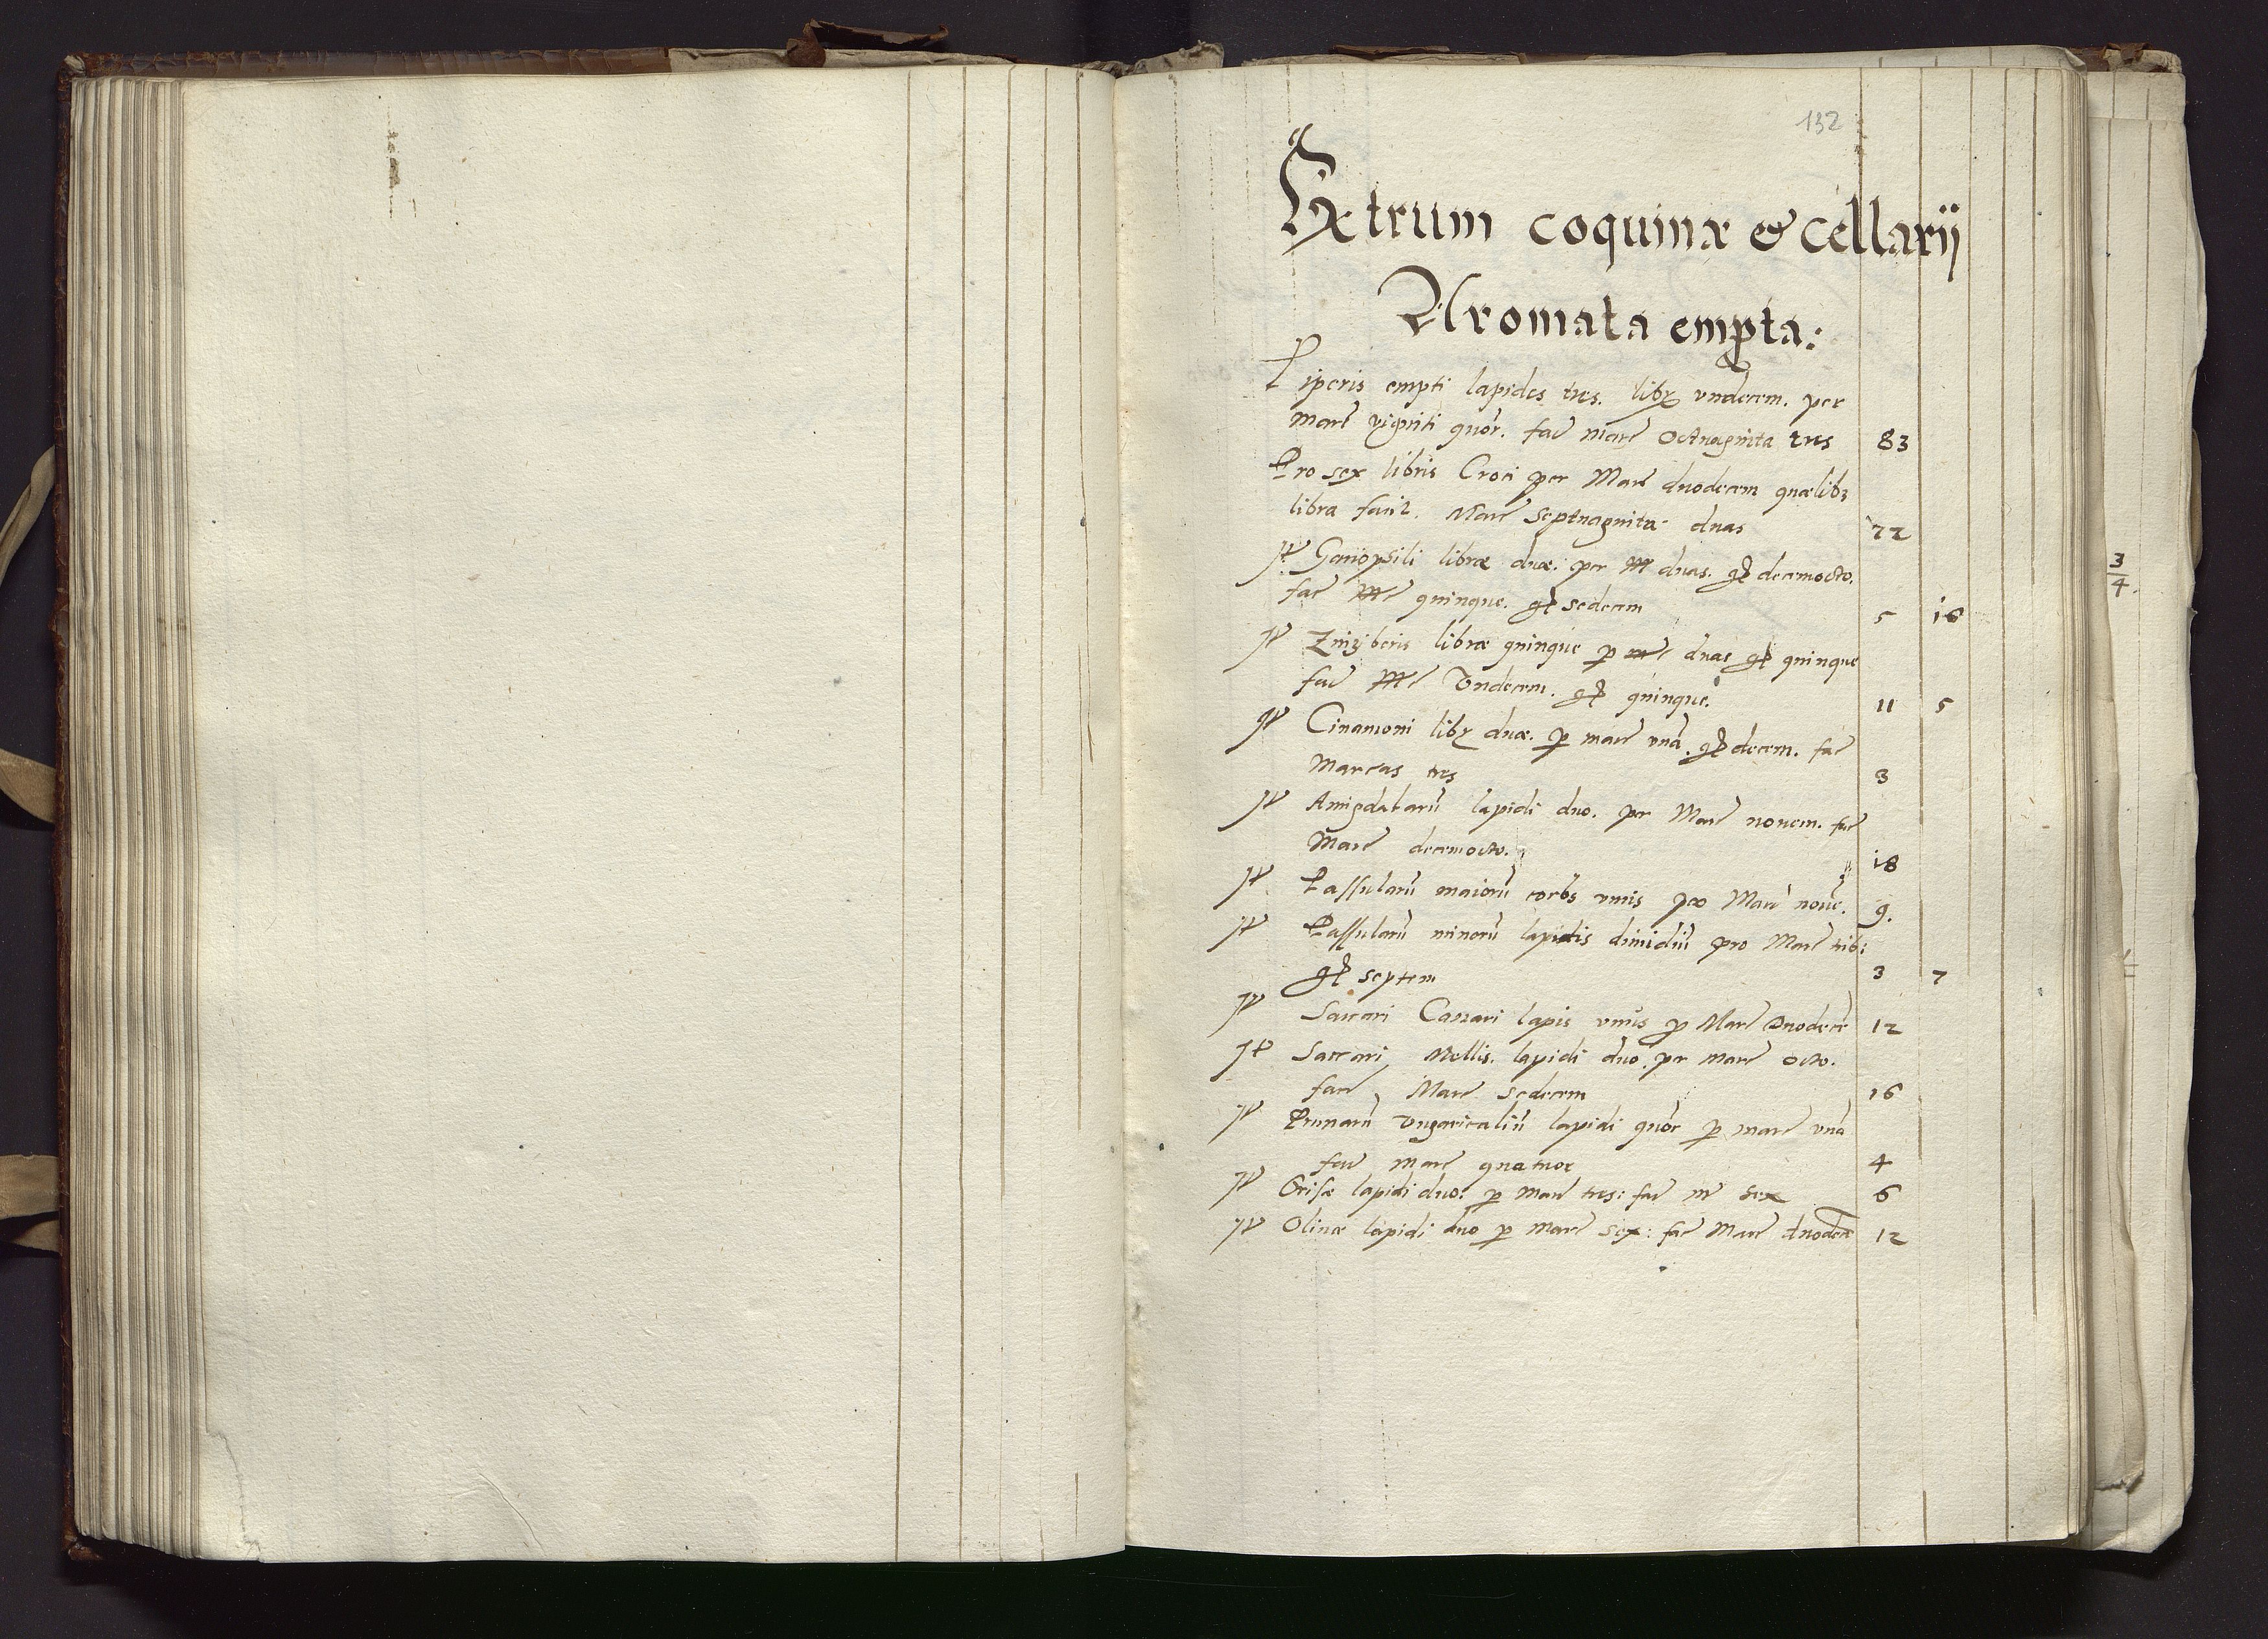 132
Extrum coquinæ et cellarij
Aromata empta:
Piperis empti lapides tres. libr vndecem. per
marc viginti quor. fac marc Octuaginta tres 83
Pro sex libris Croci per Marc duodecem quælibz
libra facit. Marc Septuaginta duas 72
It Gariopsili libræ duæ. per M duas. gr decemocto.
fac Mc quinque. gr sedecem 5 16
It Zinziberis libræ quinque p mc duas gr quinque
fac Mc Vndecem. gr quinque. 11 5
It Cinamoni libr duæ. p marc vnã. gr decem. fac
Marcas tres 3
It Amigdalarũ lapidi duo. per Marc nouem. fac
Marc decemocto. 18
It Passularũ maiorũ corbs vnus pro Marc nouẽ. 9.
It Passularũ minorũ lapidis dimidiũ pro Marc trib:
gr septem 3 7
It Saccari Canari lapis vnus p Marc Duodecẽ 12
It Saccari Mellis. lapidi duo. per marc octo.
fac Marc sedecem 16
It Prunarũ Vngaricaliũ lapidi quor p marc vnã
fac marc quatuor 4
It Orisæ lapidi duo: p marc tres: fac m sex 6
It Oliuæ lapidi duo p marc sex: fac Marc duodecẽ 12
3
4